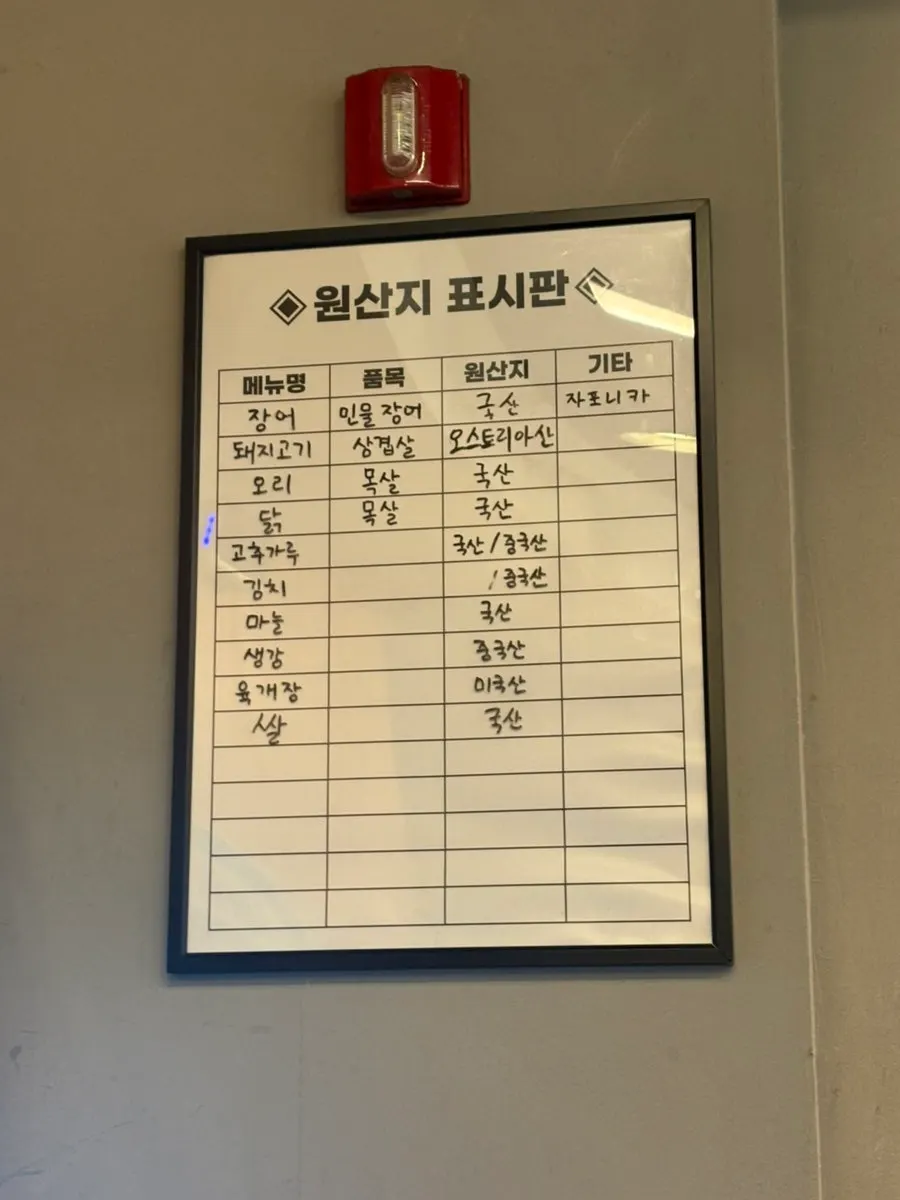 원산지 표시판
메뉴명 품목 원산지 기타
장어 민물장어 국산 자포니카
돼지고기 상겹살 오스트리아산
오리 목살 국산
닭 목살 국산
고추가루 국산/중국산
김치 /중국산
마늘 국산
생강 중국산
육개장 미국산
쌀 국산